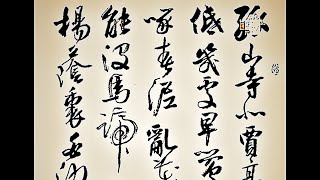 孤山寺北賈亭
低幾處早鶯
啄春泥亂花
能没馬蹄
楊蔭裏白沙